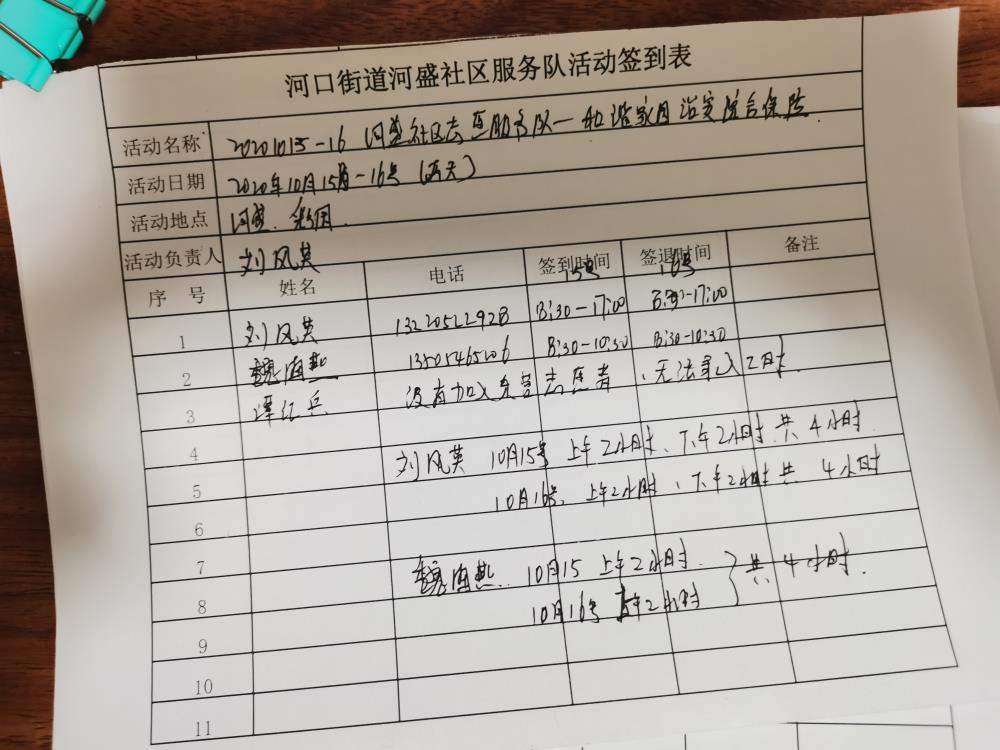 河口街道河盛社区服务队活动签到表
活动名称 20201015-16 河盛社区志愿服务队一和谐家园治安综合保险
活动日期 2020年10月15号-16号 (两天)
活动地点 河盛、
活动负责人 刘风英
序 号 姓名 电话 签到时间 15号 签退时间 16号 备注
1 刘风英 13220522928 8:30-17:00 8:30-17:00
2 魏海燕 13505465206 8:30-10:30 8:30-10:30
3 译红兵 没有加入 志愿者、无法录入工时.
4
5 刘风英 10月15号 上午2小时、下午2小时.共4小时.
6 10月16号、上午2小时、下午2小时共 4小时
7
8 魏海燕. 10月15 上午2小时. } 共4小时.
9 10月16号 上午2小时
10
11